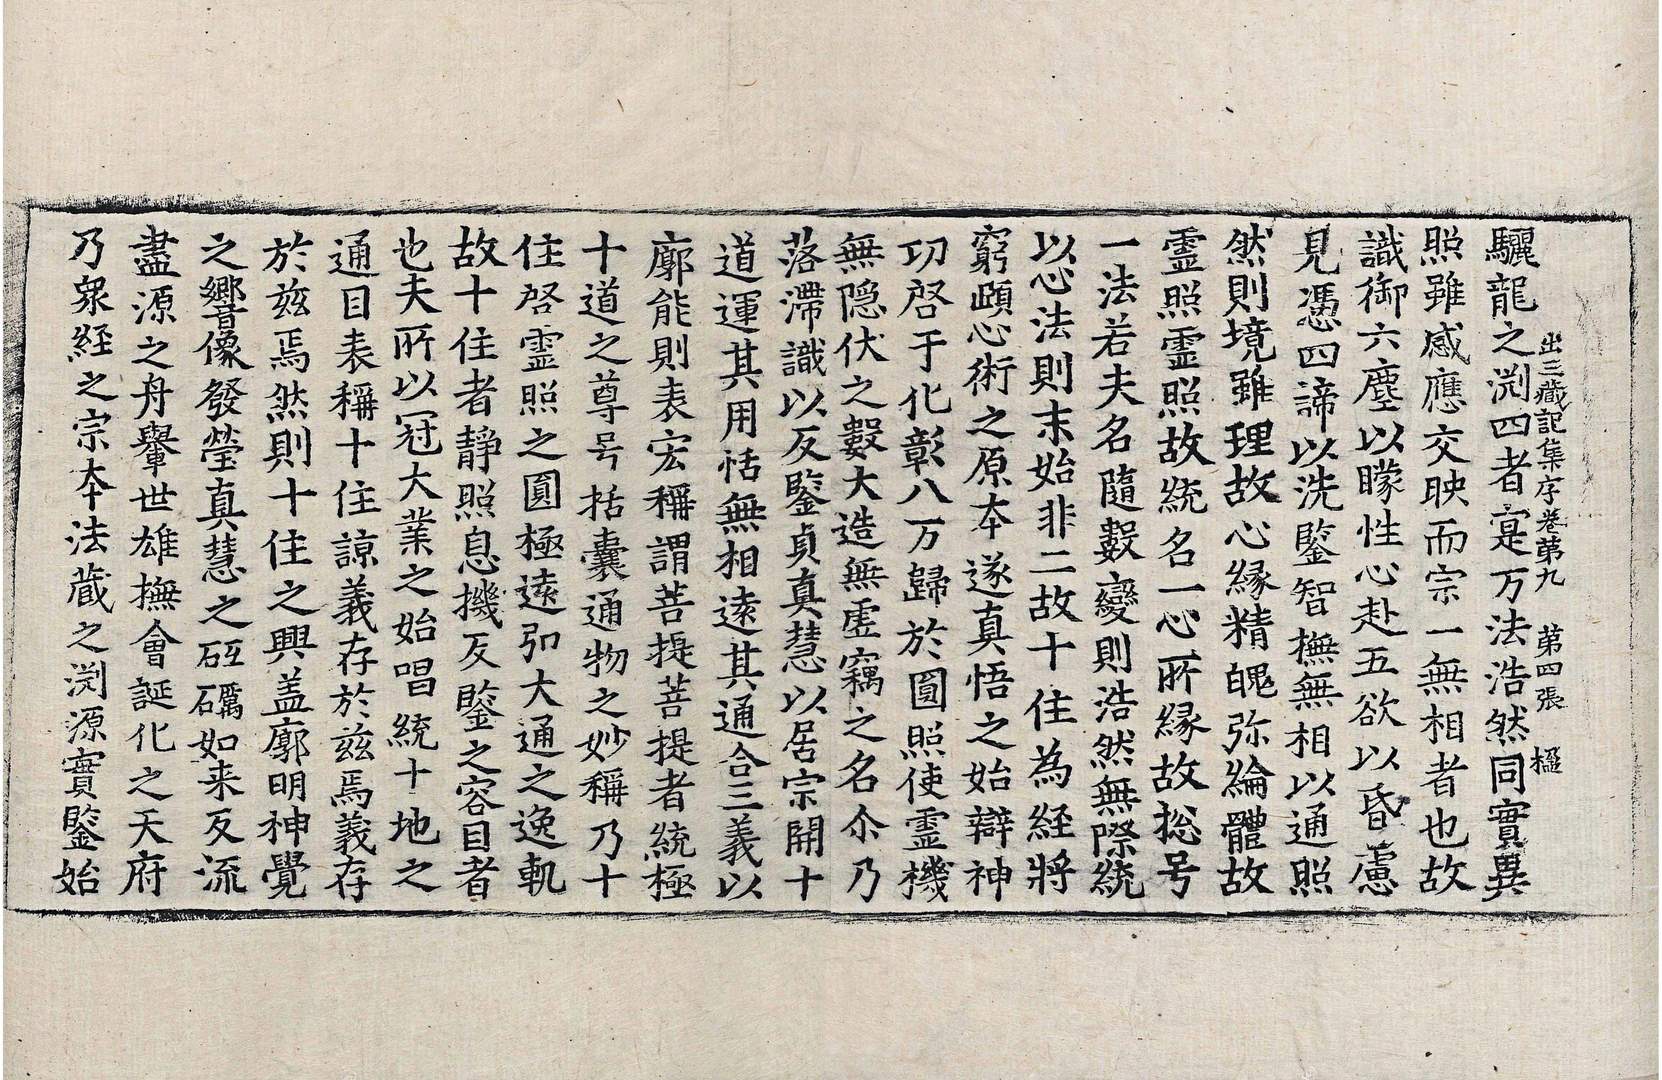 出三藏記集序卷第九 第四張 楹
驪龍之渕四者寔万法浩然同實異
照雖感應交映而宗一無相者也故
識御六塵以矇性心赴五欲以昏慮
見憑四諦以洗鑒智撫無相以通照
然則境雖理故心緣精魄弥綸體故
霊照霊照故統名一心所緣故捴号
一法若夫名隨數變則浩然無際統
以心法則末始非二故十住為經將
窮賾心術之原本遂真悟之始辯神
功啓于化彰八万歸於圓照使霊機
無隱伏之數大造無虛竊之名尒乃
落滯識以反鑒貞真慧以居宗開十
道運其用恬無相遠其通合三義以
廓能則表宏稱謂菩提菩提者統極
十道之尊号括囊通物之妙稱乃十
住啓霊照之圓極遠弘大通之逸軌
故十住者靜照息機反鑒之容目者
也夫所以冠大業之始唱統十地之
通目表稱十住諒義存於茲焉義存
於茲焉然則十住之興盖廓明神覺
之嚮像發瑩真慧之砥礪如来反流
盡源之舟轝世雄撫會誕化之天府
乃衆經之宗本法蔵之渕源實鑒始